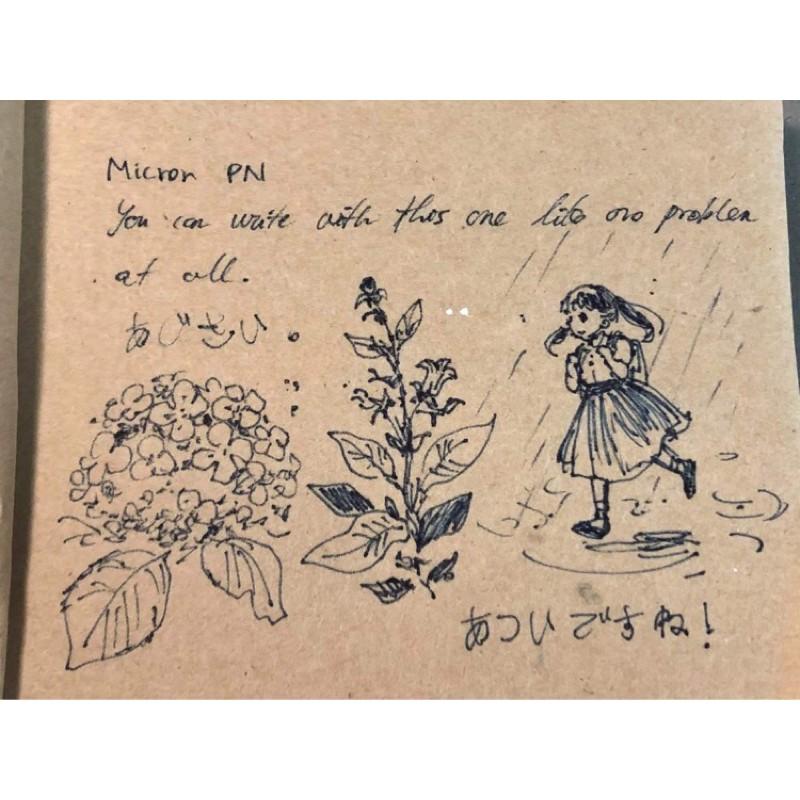 Micron PN
You can write with this one like no problem
at all.
あじさい。
あついですね!